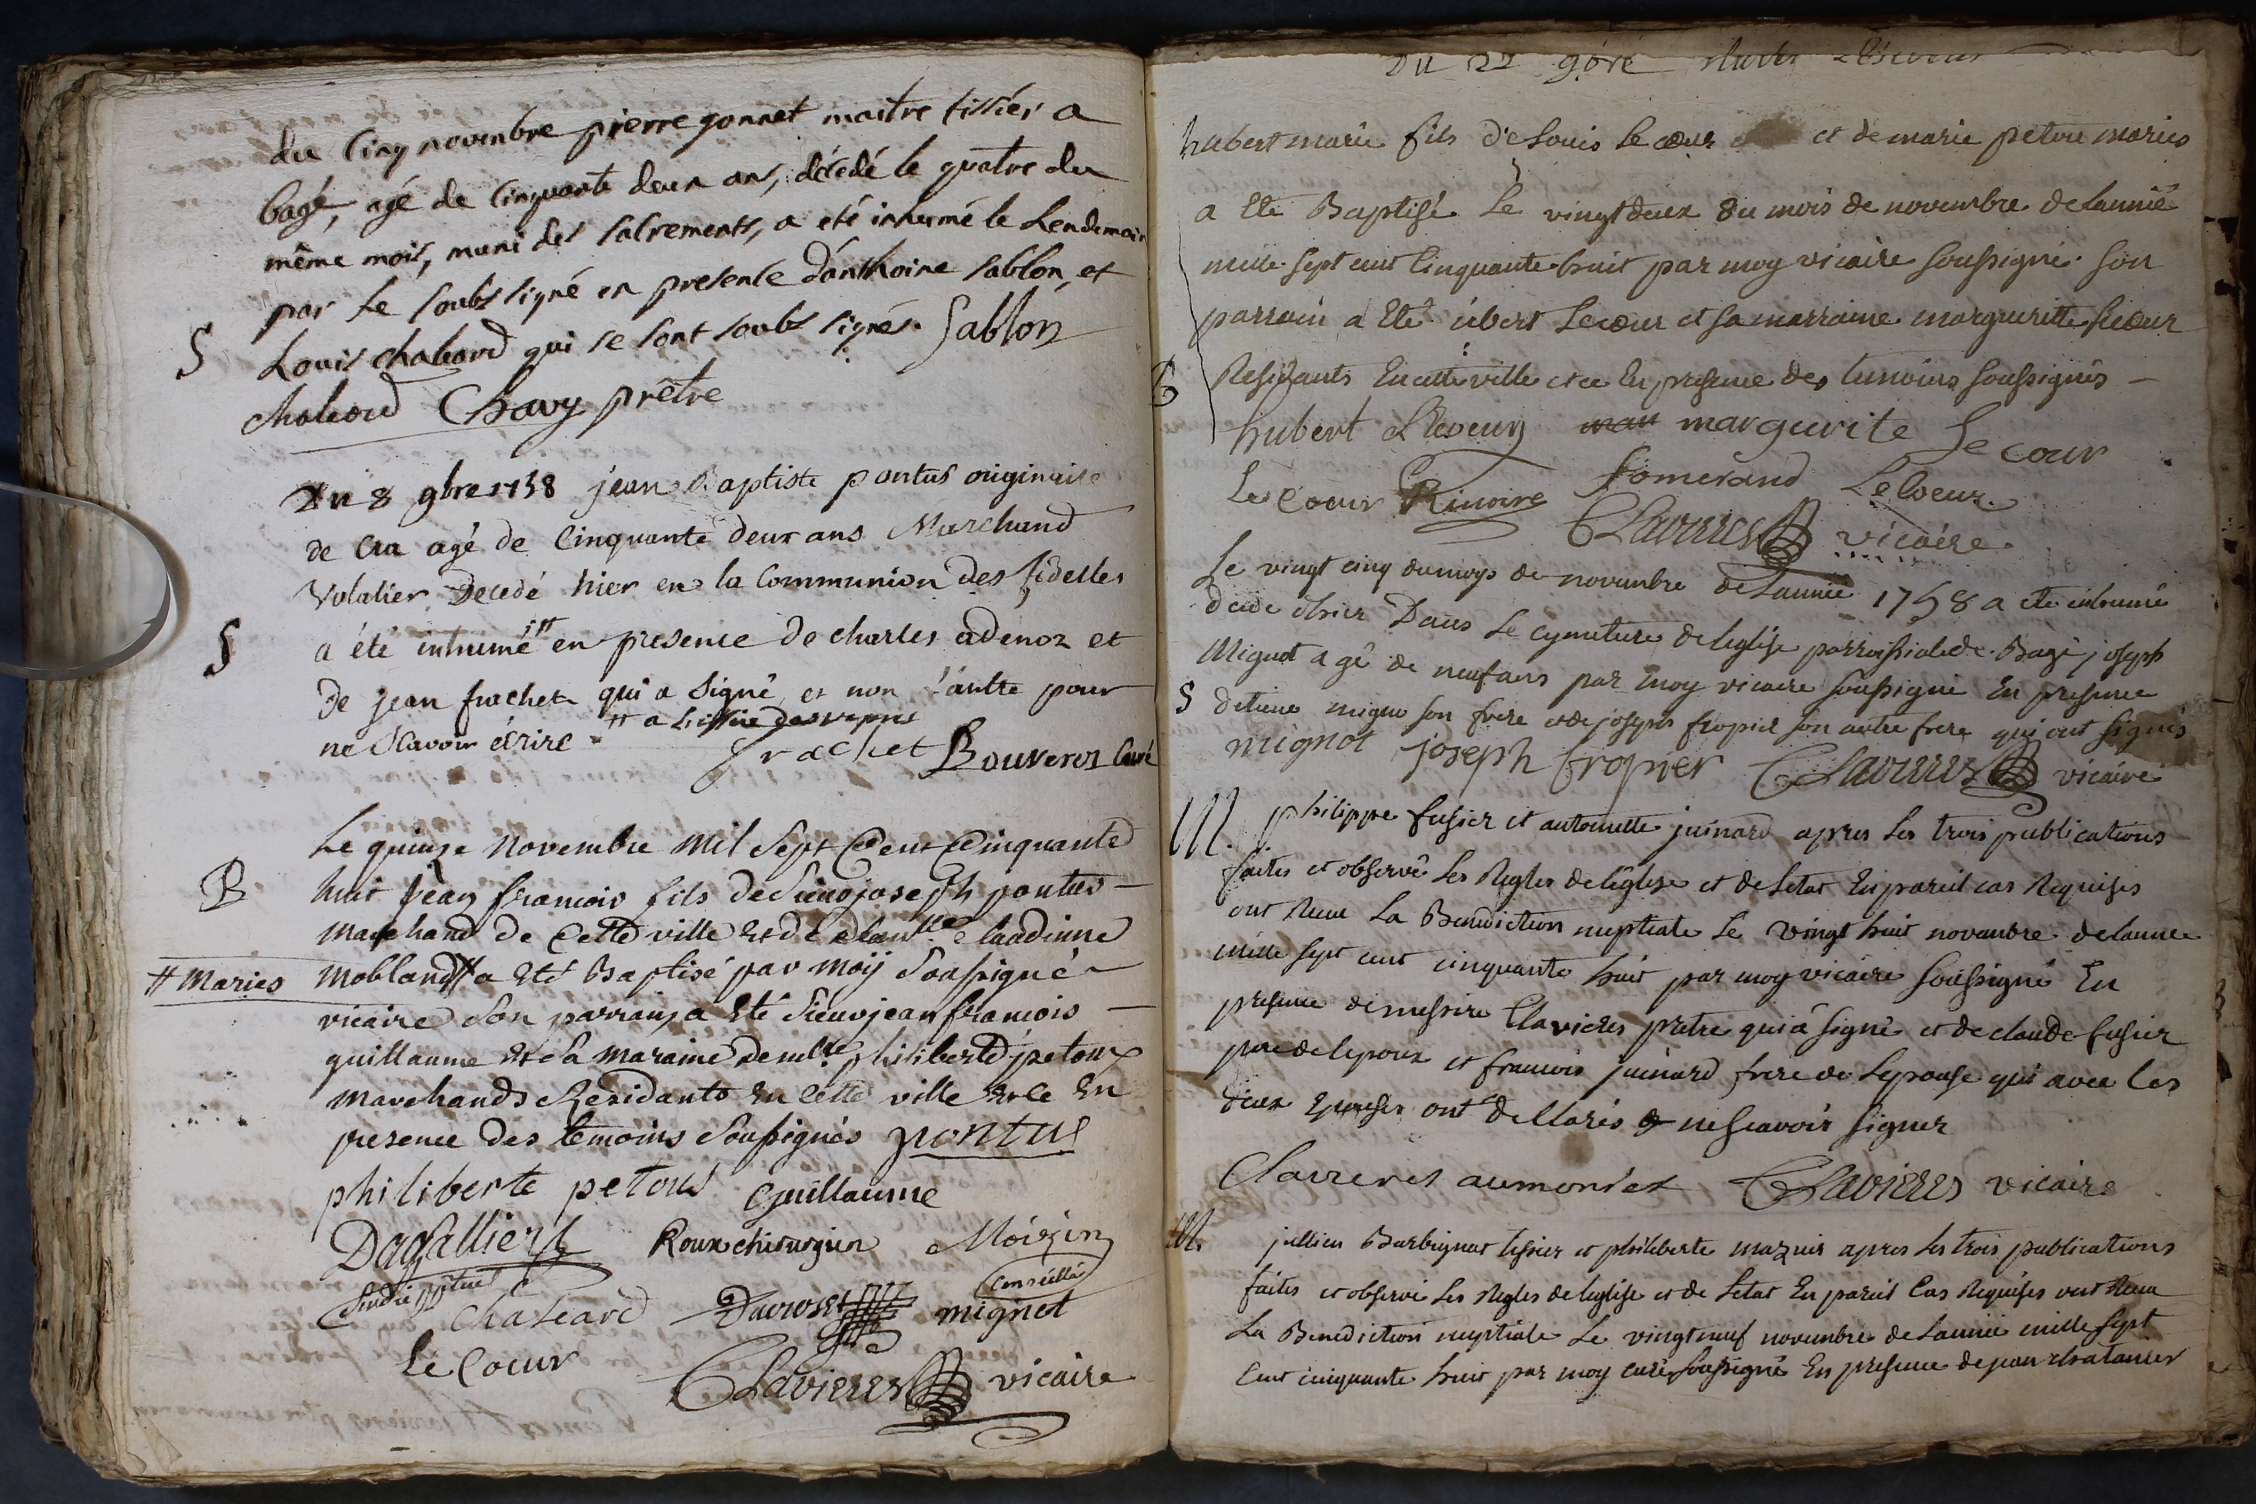 du Cinq novembre pierre gonnet maitre tissier a
bagé, agé de Cinquante deux ans, décédé le quatre du
même mois, muni des Sacrements, a eté inhumé le Lendemain
par le soubsigné en presence d'anthoine Sablon, et
S Louis chaleard qui se sont soubs signés. Sablon
chaleard Chavy prêtre
Du 8 9bre 1758 jean Baptiste pontus originaire
de Cra agé de Cinquante deux ans Marchand
Volalier Decedé hier en la Communion des fidelles
S a été inhumé en presence de charles adenoz et
de jean frachet qui a signé et non l'autre pour
ne sçavoir écrire a l'issüe des vepres
frachet Bouveroz Curé
Le quinze Novembre Mil Sept Cent Cinquante
B huit jean francois fils de Sieur joseph pontus
marchand de Cette ville Et de claudinne
# Maries Mobland # a Eté Baptisé par Moÿ Soussigné
vicaire Son parrain a Eté Sieur jean francois
guillaume Et Sa Maraine philiberte petoux
Marchands Residants En Cette ville Et Ce En
presence Des temoins Soussignés pontus
philiberte petoux Guillaume
Dagallier Roux chirurgien Moizin
Sindic conseillé
Chaleard mignot
Le Coeur Clavieres vicaire
Du 22 9bre
hubert marie fils de Louis Le cœur et de marie petou maries
a Ete Baptisé Le vingt deux du mois de novembre de Lannée
mille sept cent Cinquante huit par moy vicaire soussigné. son
parrain a Eté ubert Lecœur et sa marraine margueritte Lecœur
B Residants En cette ville et ce En presence des temoins soussignés
hubert Lecoeur marguerite Le cour
Le Coeur Rinoire fomerand Le Coeur
Clavieres vicaire
Le vingt cinq du moys de novembre de Lannée 1758 a ete inhumé
decede Dans Le cymetiere de leglise parroissiale de Bagé joseph
Mignot agé de neuf ans par moy vicaire soussigné En presence
S detiene migno son frere et de joseph fropier son autre frere qui ont signés
mignot joseph fropier Clavieres vicaire
M. philippe fusier et antoinette juinard apres Les trois publications
faites et observé Les Regles de léglise et de Letat En pareil cas Requises
ont Receu La Benediction nuptiale Le vingt huit novembre de lannee
mille sept cent cinquante huit par moy vicaire soussigné En
presence de messire Clavieres pretre qui a signé et de claude fusier
pere de lepoux et francois juinard frere de Lepouse qui avec les
deux epouses ont dellarés ne scavoir signer
Clavieres aumonier Clavieres vicaire
M. jullien Barbignat tissier et philiberte mazuir apres Les trois publications
faites et observé Les Regles de leglise et de Letat En pareil Cas Requises ont Receu
La Benediction nuptiale Le vingt neuf novembre de Lannée mille sept
Cent cinquante huit par moy curé soussigné En presence de jean